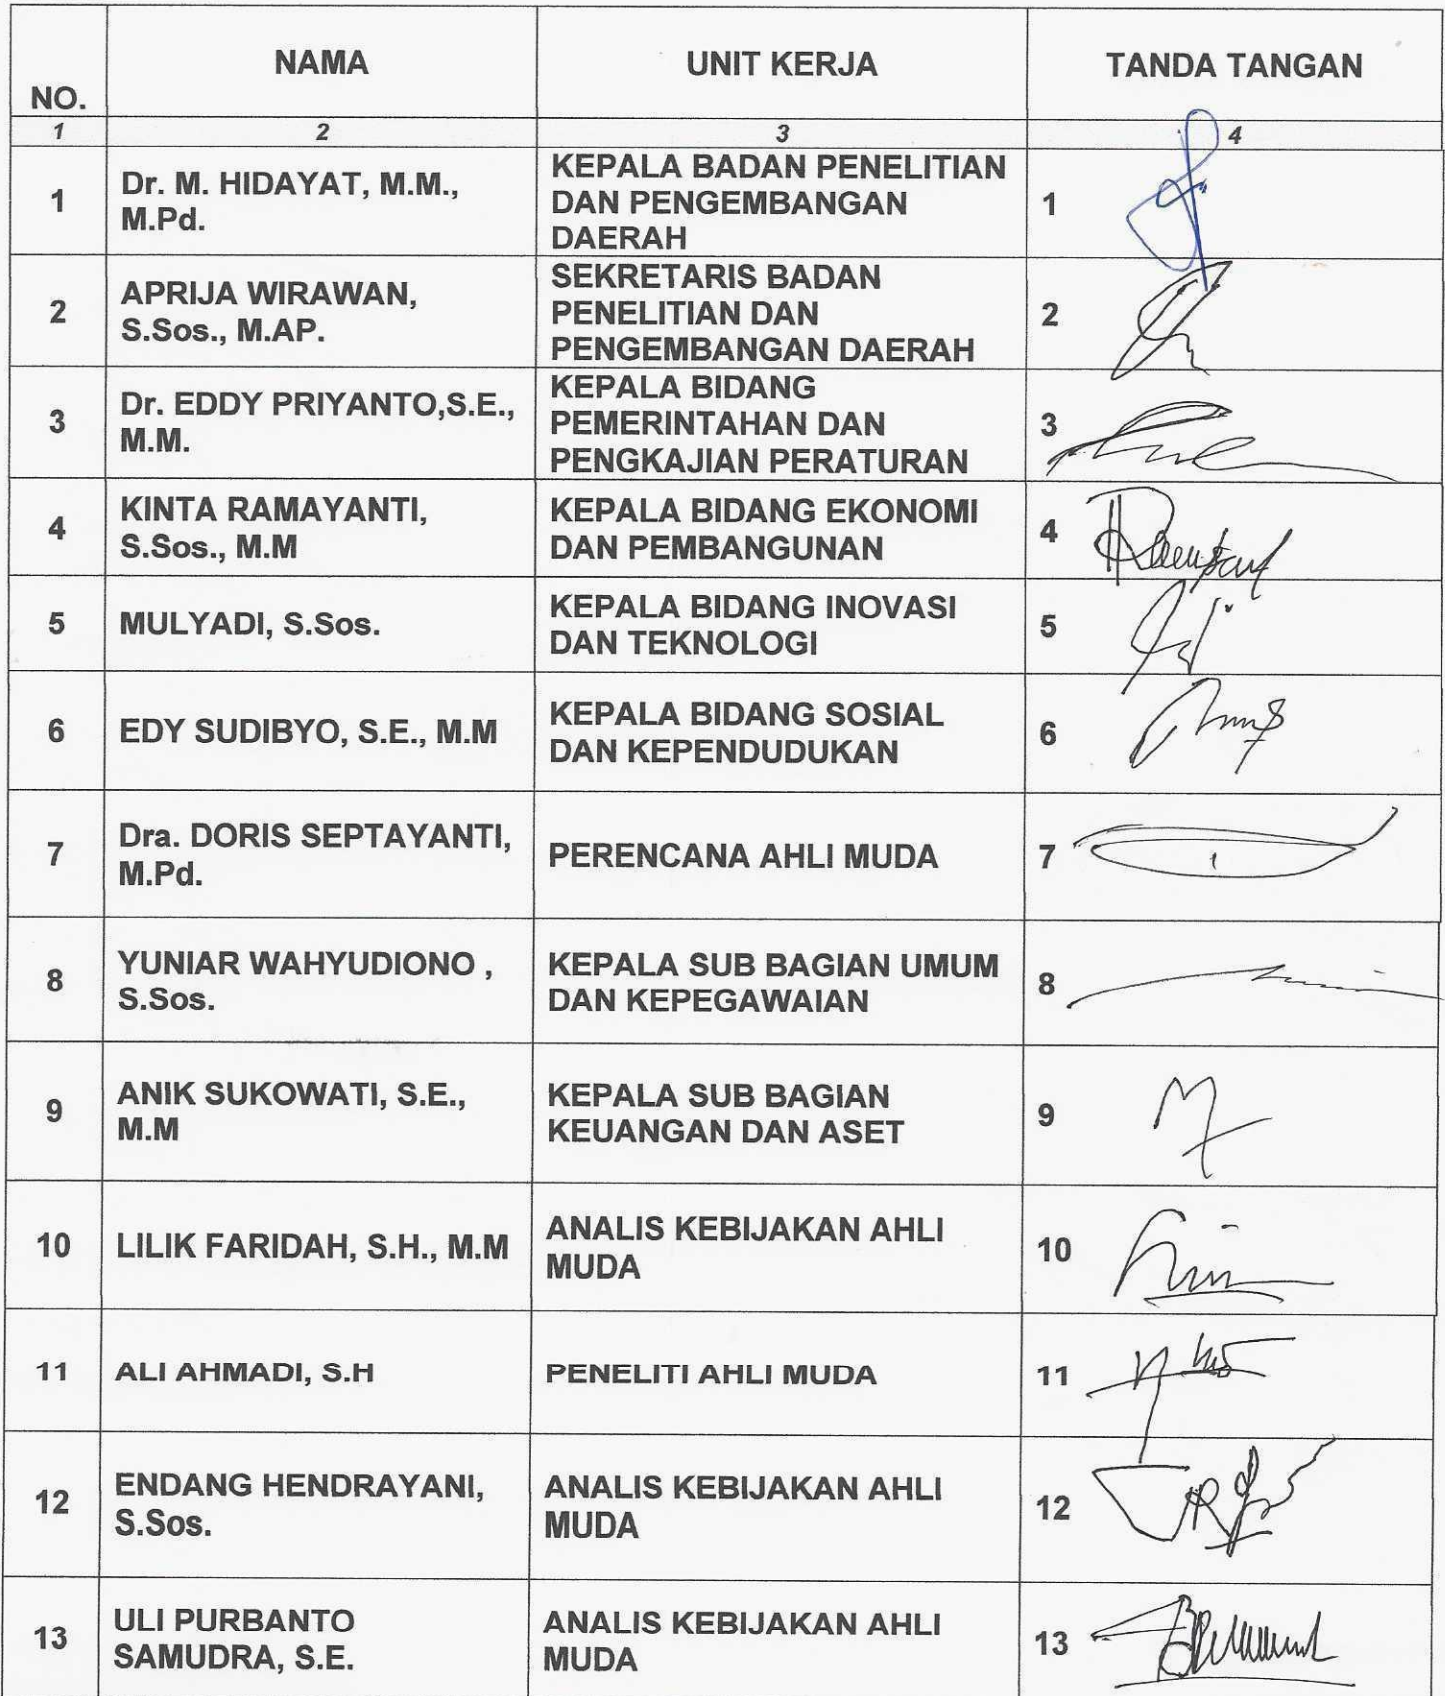 NO.
NAMA
UNIT KERJA
TANDA TANGAN
1
2
3
4
1
Dr. M. HIDAYAT, M.M.,
M.Pd.
KEPALA BADAN PENELITIAN
DAN PENGEMBANGAN
DAERAH
1
2
APRIJA WIRAWAN,
S.Sos., M.AP.
SEKRETARIS BADAN
PENELITIAN DAN
PENGEMBANGAN DAERAH
2
3
Dr. EDDY PRIYANTO,S.E.,
M.M.
KEPALA BIDANG
PEMERINTAHAN DAN
PENGKAJIAN PERATURAN
3
4
KINTA RAMAYANTI,
S.Sos., M.M
KEPALA BIDANG EKONOMI
DAN PEMBANGUNAN
4
5
MULYADI, S.Sos.
KEPALA BIDANG INOVASI
DAN TEKNOLOGI
5
6
EDY SUDIBYO, S.E., M.M
KEPALA BIDANG SOSIAL
DAN KEPENDUDUKAN
6
7
Dra. DORIS SEPTAYANTI,
M.Pd.
PERENCANA AHLI MUDA
7
8
YUNIAR WAHYUDIONO ,
S.Sos.
KEPALA SUB BAGIAN UMUM
DAN KEPEGAWAIAN
8
9
ANIK SUKOWATI, S.E.,
M.M
KEPALA SUB BAGIAN
KEUANGAN DAN ASET
9
10
LILIK FARIDAH, S.H., M.M
ANALIS KEBIJAKAN AHLI
MUDA
10
11
ALI AHMADI, S.H
PENELITI AHLI MUDA
11
12
ENDANG HENDRAYANI,
S.Sos.
ANALIS KEBIJAKAN AHLI
MUDA
12
13
ULI PURBANTO
SAMUDRA, S.E.
ANALIS KEBIJAKAN AHLI
MUDA
13